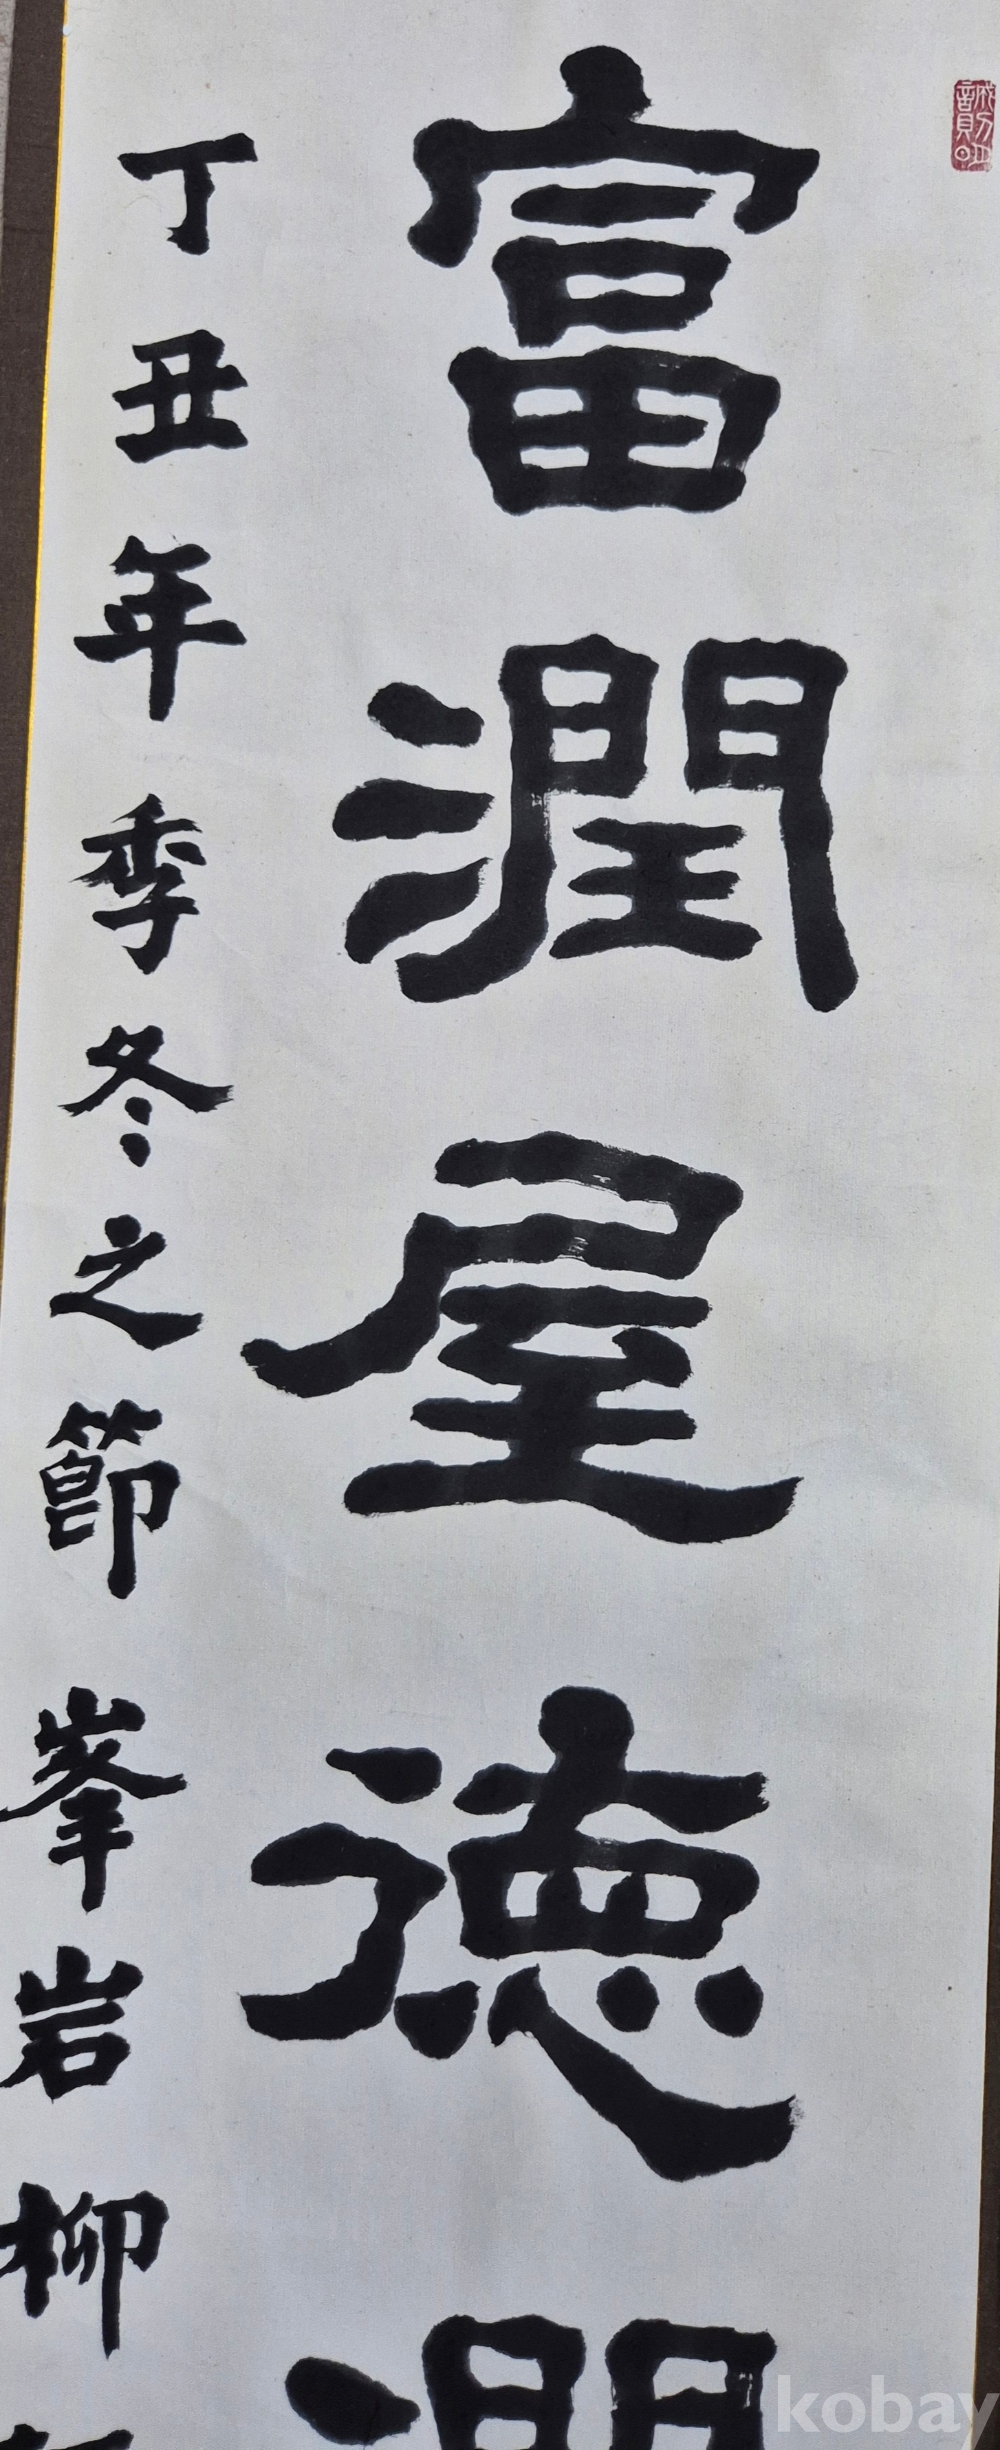 富潤屋德潤
丁丑年季冬之節 峯岩柳
kobay